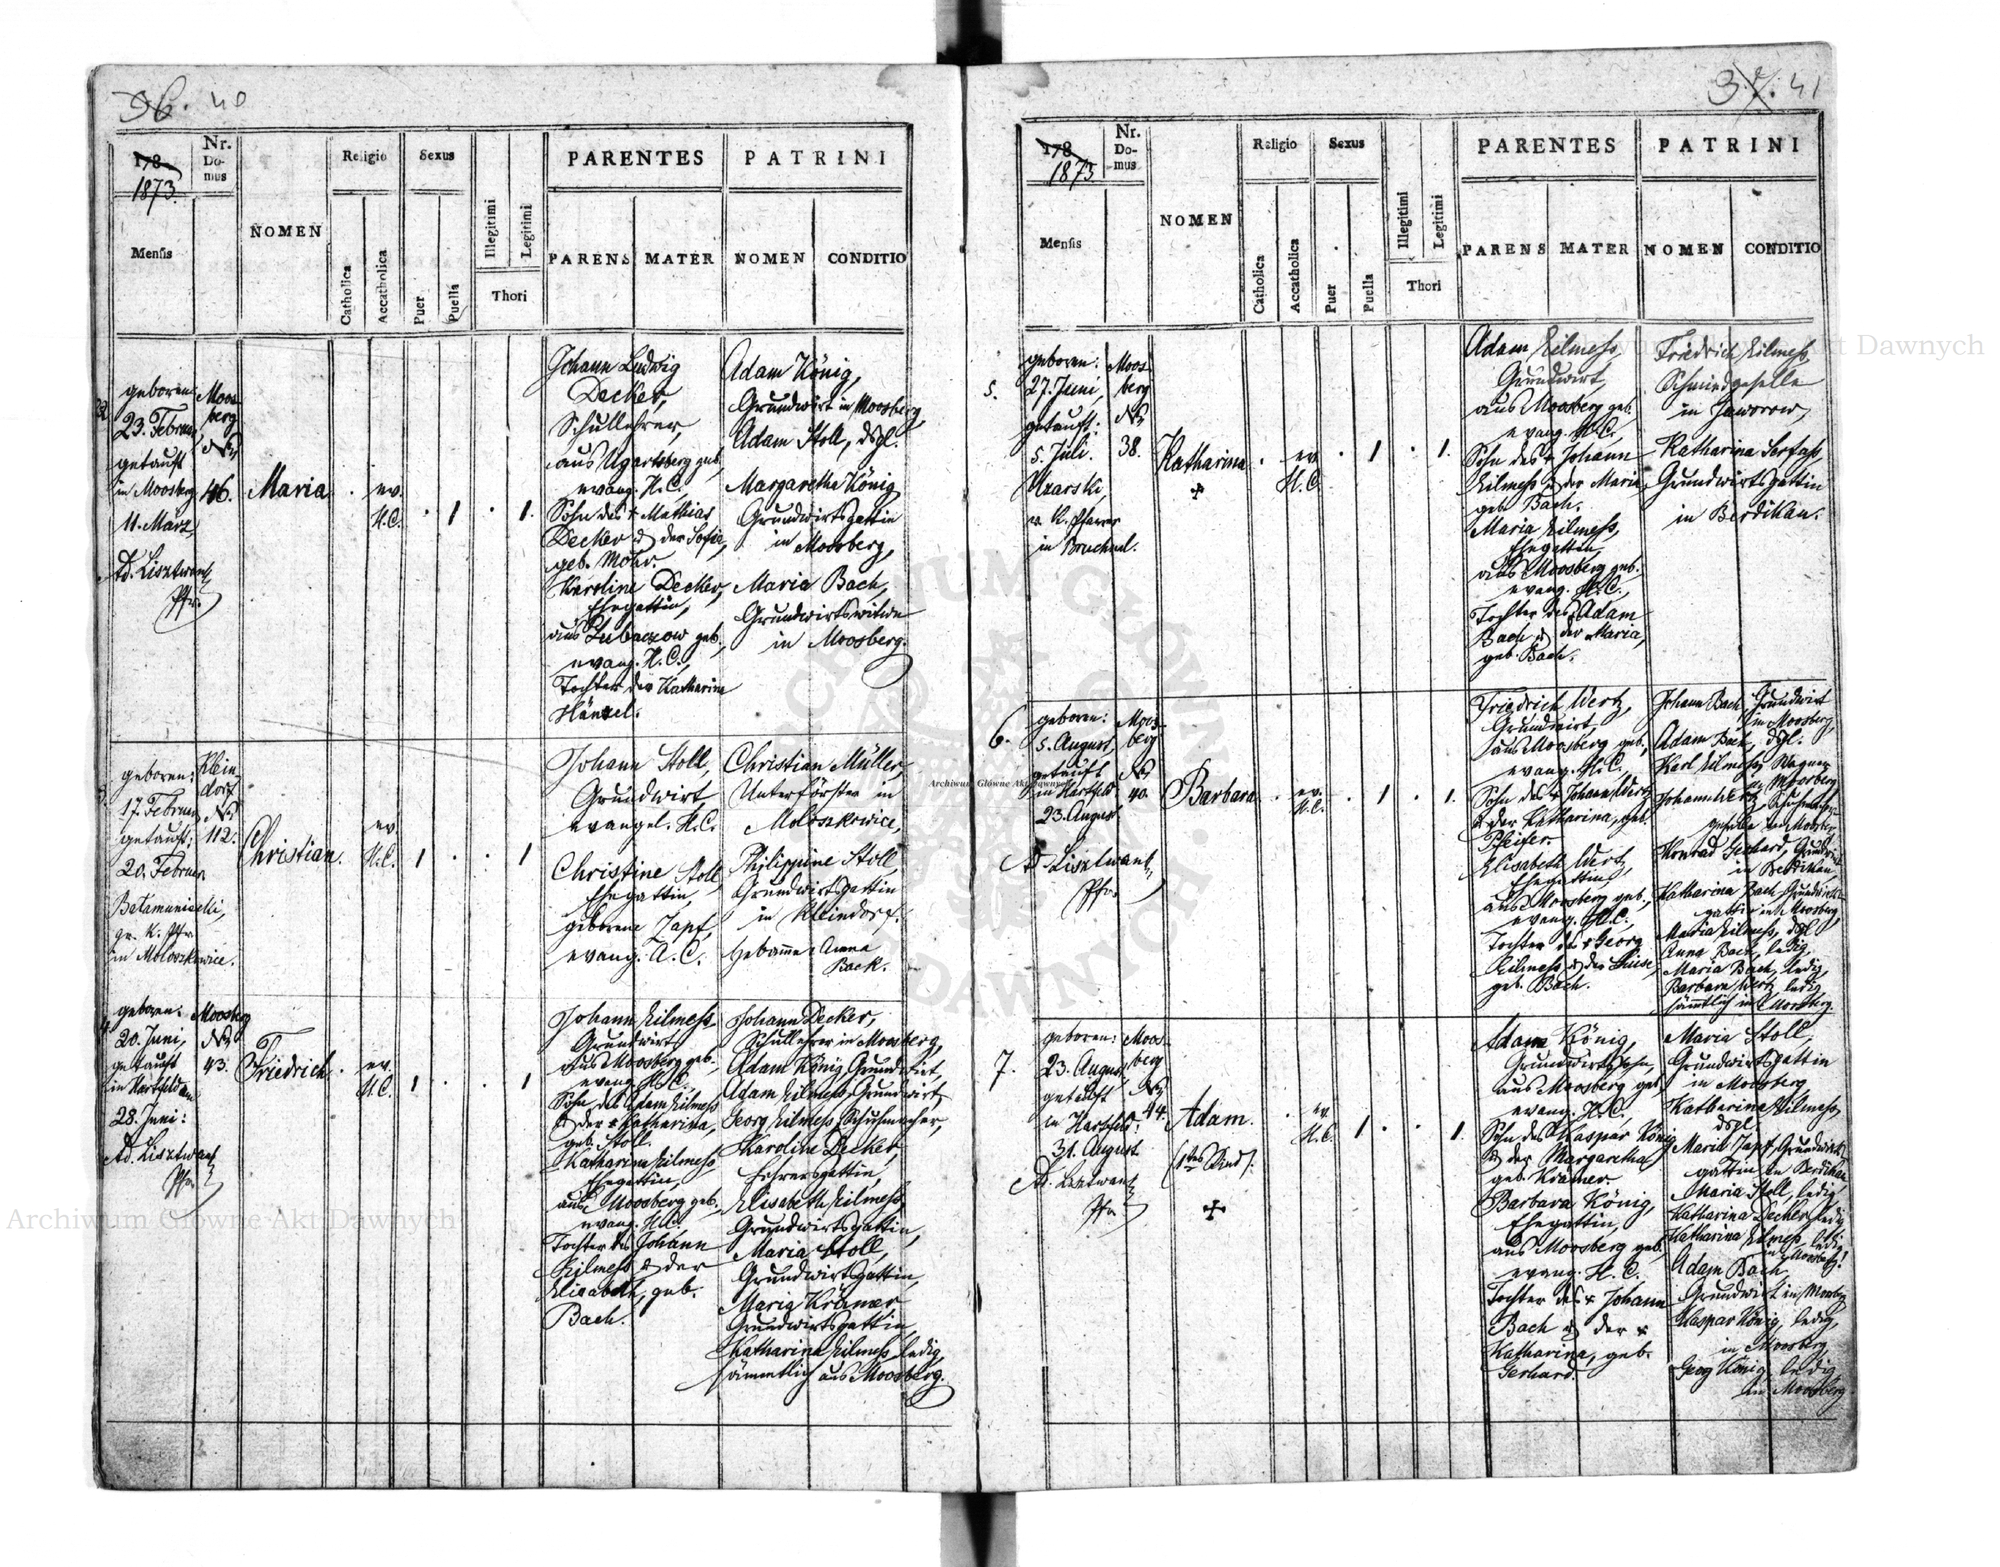 36. 40
178
1873.
Nr.
Do-
mus
Religio
Sexus
PARENTES
PATRINI
Mensis
NOMEN
Catholica
Accatholica
Puer
Puella
Illegitimi
Legitimi
Thori
PARENS
MATER
NOMEN
CONDITIO
geboren:
23. Februar,
getauft
in Moosberg
11. März,
Ad. Lisztwan
Pfr.
Moos-
berg
No
46.
Maria
ev.
H.C.
1
1.
Johann Ludwig
Decker,
Schullehrer,
aus Ugartsberg geb.
evang. H.C.,
Sohn des + Mathias
Decker u. der Sofie,
geb. Mohr.
Karoline Decker,
Ehegattin,
aus Lubaczow geb.,
evang. H.C.,
Tochter der Katharina
Hänzel.
Adam König,
Grundwirt in Moosberg,
Adam Stoll, dsgl.
Margaretha König
Grundwirtsgattin
in Moosberg,
Maria Bach,
Grundwirtswitwe
in Moosberg.
3.
geboren:
17. Februar
getauft:
20. Februar
gr. K. Pfr.
in Moloszkowice.
Klein-
dorf
No
112.
Christian.
ev.
H.C.
1
1
Johann Stoll,
Grundwirt,
evangel. H.C.
Christine Stoll
Ehegattin,
geborene Zapf,
evang. A.C.
Christian Müller,
Unterförster in
Moloszkowice,
Philippine Stoll,
Grundwirtsgattin
in Kleindorf.
Hebamme: Anna
Back.
4.
geboren:
20. Juni,
getauft
in Hartfeld am
28. Juni:
Ad. Lisztwan
Pfr.
Moosberg
No
43.
Friedrich.
ev.
H.C.
1
1
Johann Kilmess
Grundwirt
aus Moosberg geb.,
evang. H.C.,
Sohn des Adam Kilmess
u. der + Katharina,
geb. Stoll.
Katharina Kilmess
Ehegattin,
aus Moosberg geb.
evang. H.C.,
Tochter des Johann
Kilmess u. der
Elisabeth, geb.
Bach.
Johann Decker,
Schullehrer in Moosberg,
Adam König Grundwirt,
Adam Kilmess Grundwirt,
Georg Kilmess, Schuhmacher,
Karoline Decker,
Lehrersgattin,
Elisabeth Kilmess,
Grundwirtsgattin,
Maria Stoll,
Grundwirtsgattin,
Maria Krämer
Grundwirtsgattin
Katharina Kilmess, ledig,
sämmtlich aus Moosberg.
37. 41
178
1873
Nr.
Do-
mus
Religio
Sexus
PARENTES
PATRINI
Mensis
NOMEN
Catholica
Accatholica
Puer
Puella
Illegitimi
Legitimi
Thori
PARENS
MATER
NOMEN
CONDITIO
5.
geboren:
27. Juni,
getauft:
5. Juli.
r. K. Pfarrer
in Bruchnal.
Moos
berg
No
38.
Katharina
+
ev
H.C.
1
1.
Adam Kilmess,
Grundwirt,
aus Moosberg geb.
evang. H.C.,
Sohn des + Johann
Kilmess u. der Maria,
geb. Bach.
Maria Kilmess,
Ehegattin,
aus Moosberg geb.,
evang. H.C.,
Tochter des Adam
Bach u. der Maria,
geb. Bach.
Friedrich Kilmess
Schmiedgeselle
in Jaworow,
Katharina Serfass
Grundwirtsgattin
in Berdikau.
6.
geboren:
5. August,
getauft
in Hartfeld
23. August.
Ad. Lisztwan
Pfr.
Moos-
berg
No
40.
Barbara
ev.
H.C.
1
1.
Friedrich Wertz,
Grundwirt,
aus Moosberg geb.,
evang. H.C.
Sohn des + Johann Wertz
u. der Katharina, geb.
Pfeifer.
Elisabeth Wertz,
Ehegattin,
aus Moosberg geb.,
evang. H.C.
Tochter des + Georg
Kilmess u. der Luise,
geb. Bach.
Johann Bach, Grundwirt
in Moosberg,
Adam Bach, dsgl.
Karl Kilmess, Wagner
in Moosberg
Johann Wertz, Schuhmacher-
geselle in Moosberg
Konrad Gerhard, Grundwirt
in Berdikau,
Katharina Bach, Grundwirts-
gattin in Moosberg,
Maria Kilmess, dsgl
Anna Bach, ledig,
Maria Bach, ledig,
Barbara Wertz ledig,
sämmtlich in Moosberg.
7.
geboren:
23. August,
getauft
in Hartfeld:
31. August
Ad. Lisztwan
Pfr.
Moos-
berg
No
44.
Adam.
(1tes Kind).
+
ev.
H.C.
1
1.
Adam König,
Grundwirtssohn,
aus Moosberg geb.,
evang. H.C.,
Sohn des Kaspar König
u. der Margaretha
geb. Krämer.
Barbara König,
Ehegattin,
aus Moosberg geb.,
evang. H.C.
Tochter des + Johann
Bach u. der +
Katharina, geb.
Gerhard.
Maria Stoll,
Grundwirtsgattin
in Moosberg
Katharina Kilmess,
dsgl.
Maria Zapf, Grundwirts-
gattin in Berdikau
Maria Stoll, ledig
Katharina Decker, ledig
Katharina Kilmess, ledig
in Moosberg!
Adam Bach,
Grundwirt in Moosberg
Kaspar König, ledig,
in Moosberg
Georg König, ledig
in Moosberg
Archiwum Główne Akt Dawnych